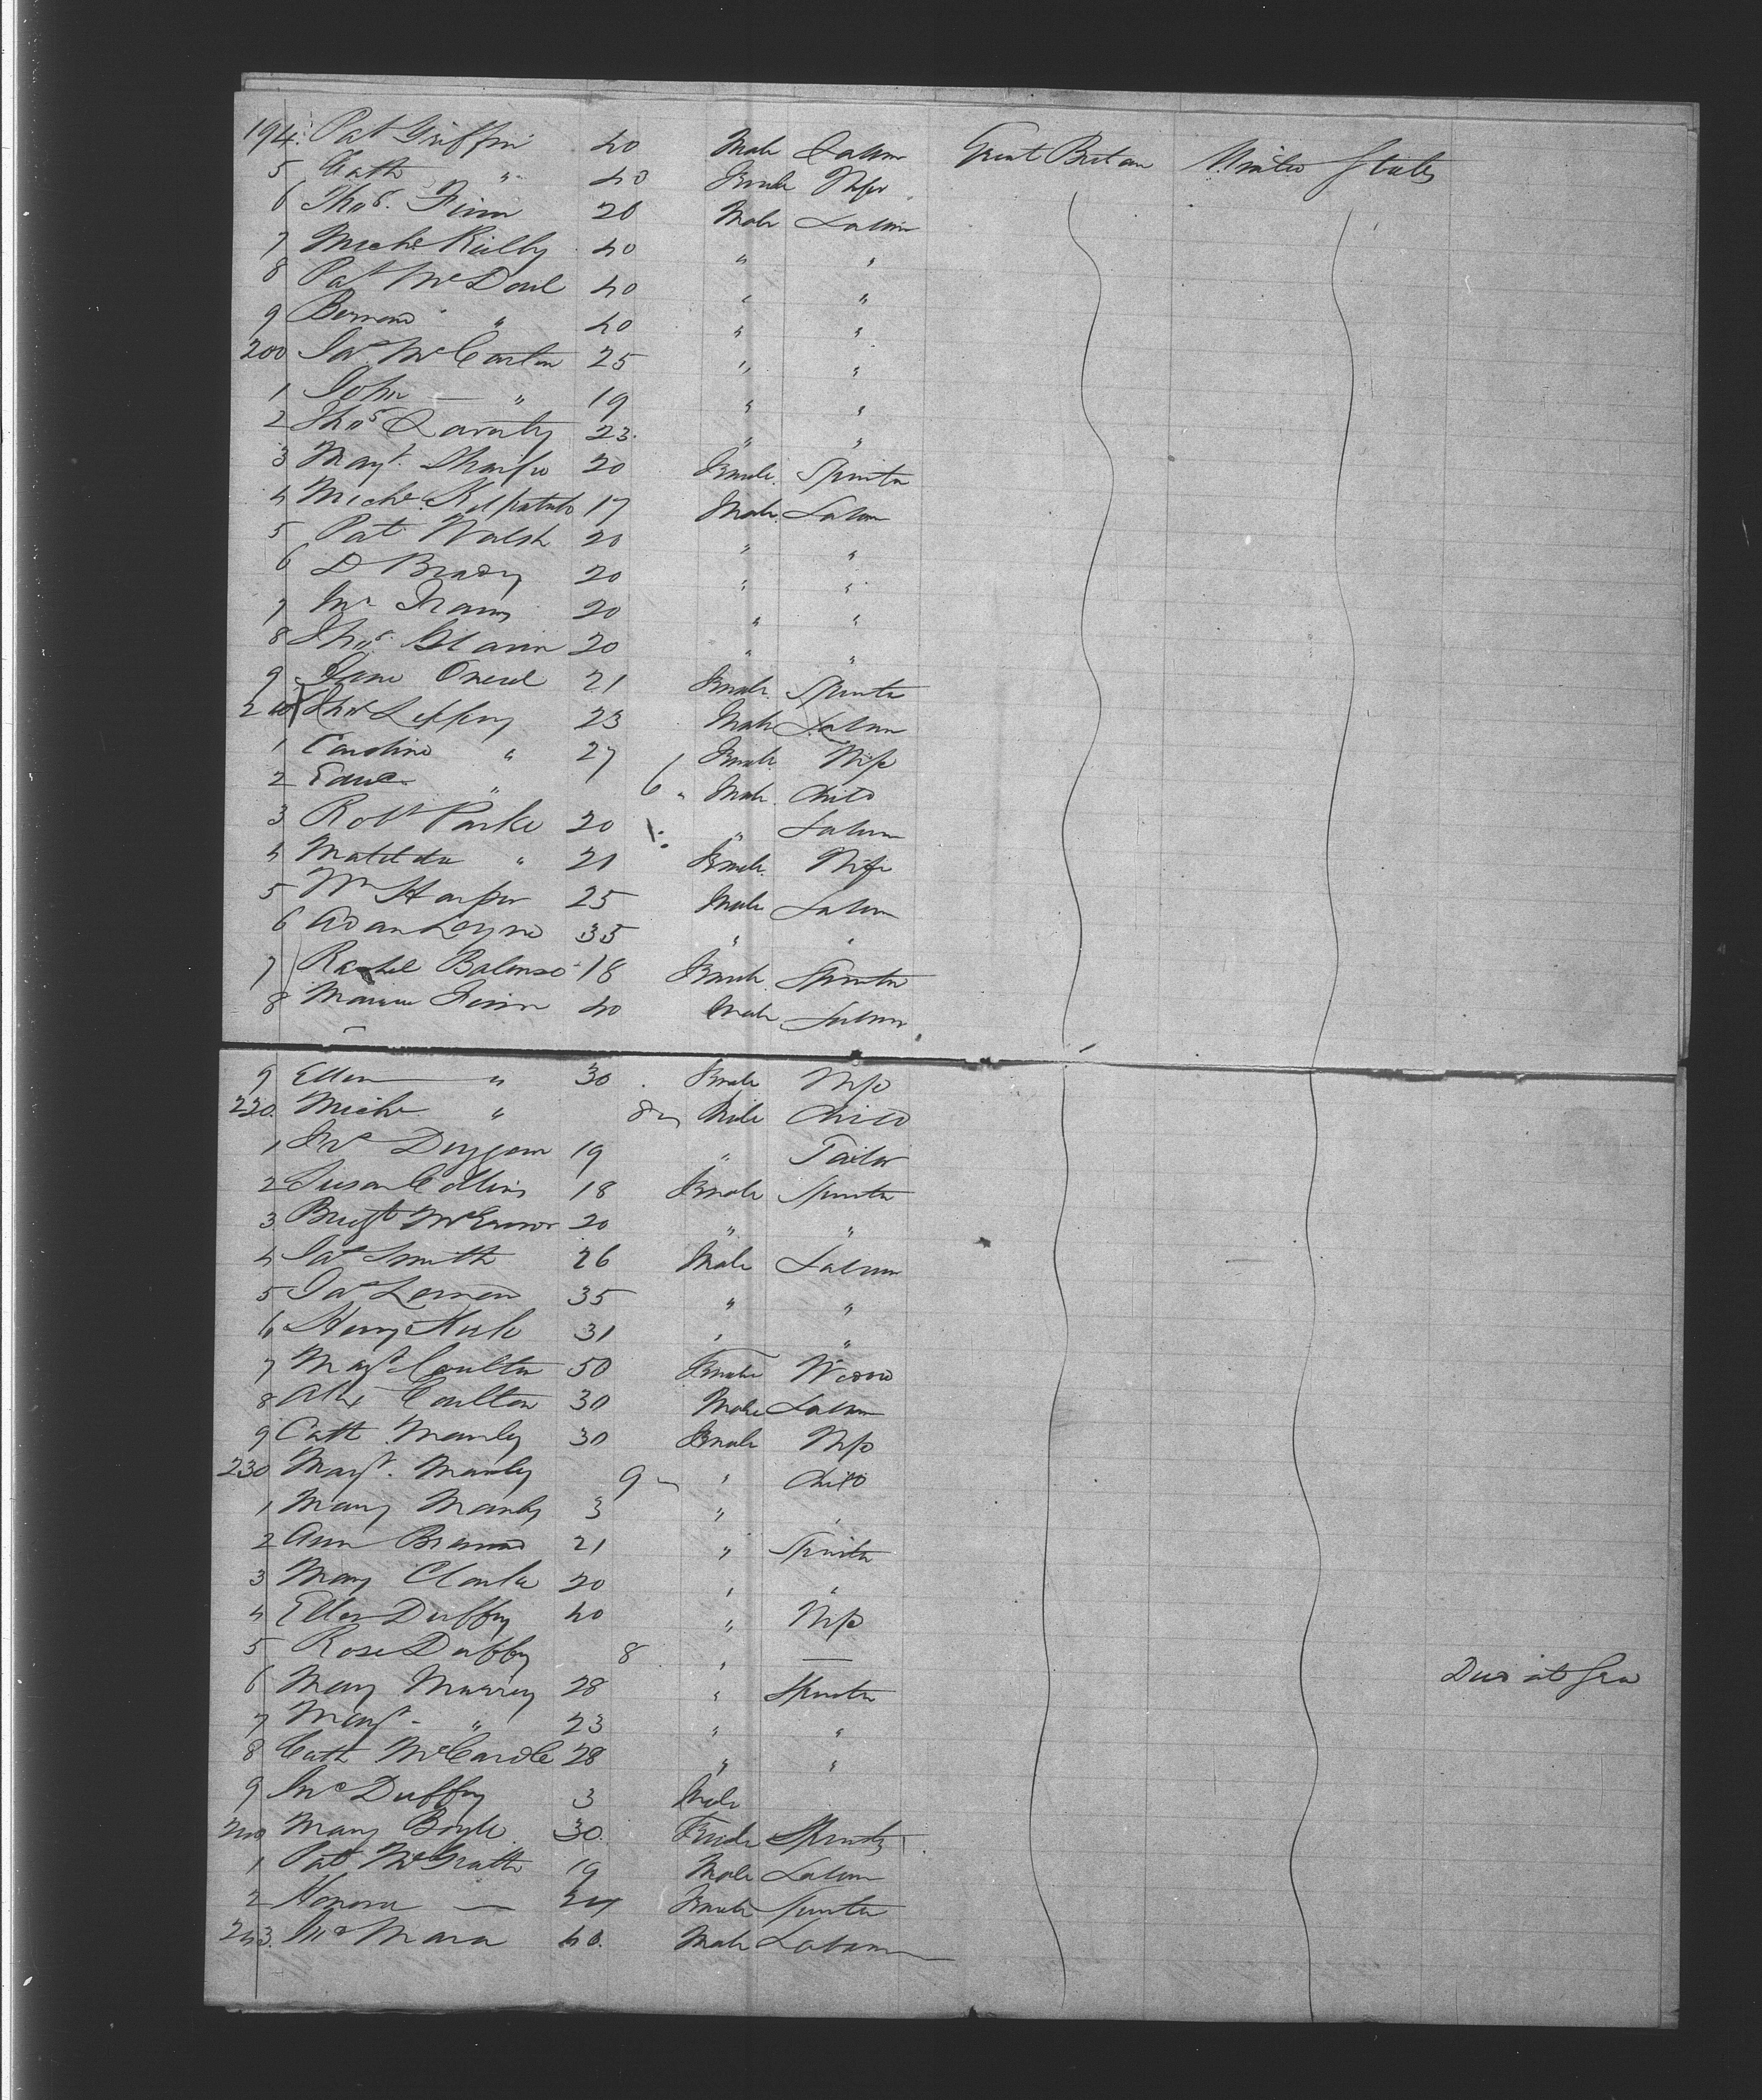 194 Pat Griffin 40 Male Labor Great Britain United States
5 Cath " 40 Female Wife
6 Thos. Finn 26 Male Labor
7 Michl Reilly 40 " "
8 Pat McDoul 40 " "
9 Bernard " 40 " "
200 Jas McCartin 25 " "
1 John — " 19 " "
2 Thos Laverty 23 " "
3 Magt. Sharpe 20 Female Spinster
4 Michl Kilpatrick 17 Male Labor
5 Pat Walsh 20 " "
6 D Brady 20 " "
7 20 " "
8 Thos. 20 " "
9 Jane Oneil 21 Female Spinster
210 Thos Leffry 23 Male Labor
1 Caroline " 27 Female Wife
2 Edwd " 6 " Male Child
3 Robt Parke 20 " Labor
4 Matilda " 21 Female Wife
5 Wm Harper 25 Male Labor
6 Adam 35 " "
7 Rachel 18 Female Spinster
8 Finn 40 Male Labor
9 Ellen — " 30 Female Wife
220 Michl " 8 Male Child
1 Jno 19 " Tailor
2 Susan Collins 18 Female Spinster
3 Bridgt 20 " "
4 Jas Smith 26 Male Labor
5 Jas 35 " "
6 Henry 31 " "
7 Magt Coulter 50 Female Widow
8 Alex Coulter 30 Male Labor
9 Cath Manly 30 Female Wife
230 Magt. Manly 9 " Child
1 Mary Manly 3 " "
2 Ann 21 " Spinster
3 Mary Clarke 20 " "
4 Ellen Duffy 40 " Wife
5 Rose Duffy 8 " — Died at Sea
6 Mary Murray 28 " Spinster
7 Magt - " 23 " "
8 Cath McCardle 28 " "
9 Jno Duffy 3 Male
240 Mary Boyle 30 Female Spinster
1 Pat McGrath 19 Male Labor
2 Honora — 24 Female Spinster
243 Mara 40 Male Labor